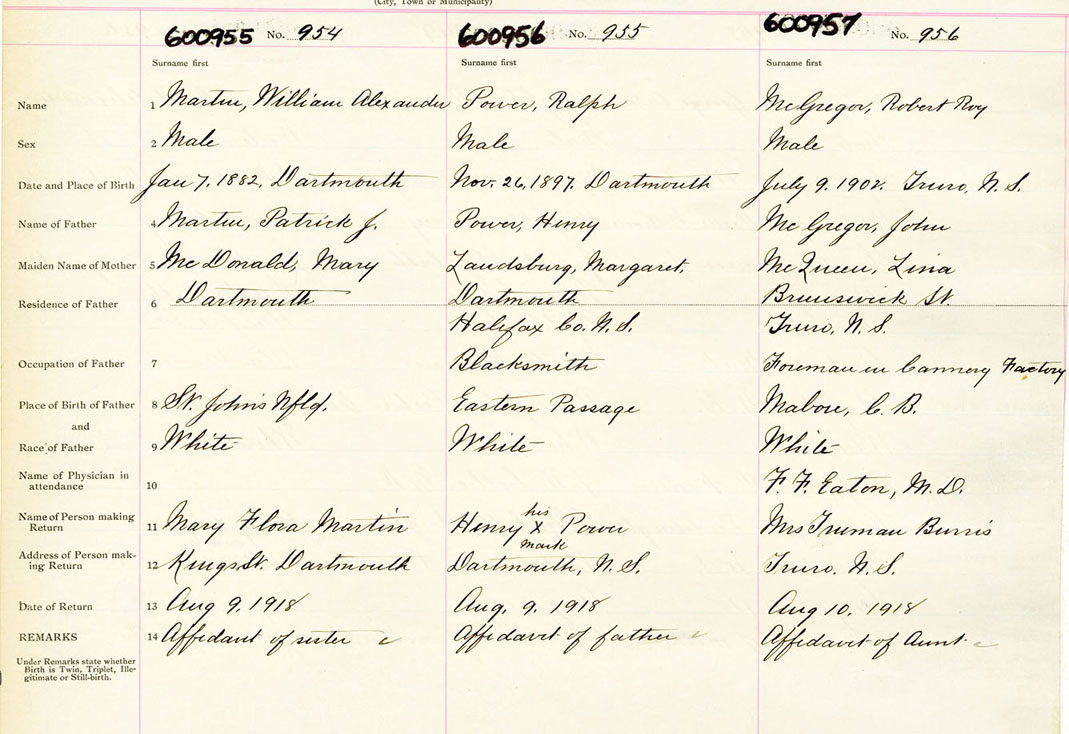 (City, Town or Municipality)
600955 No. 954 600956 No. 955 600957 No. 956
Surname first Surname first Surname first
Name 1 Martin, William Alexander Power, Ralph McGregor, Robert Roy
Sex 2 Male Male Male
Date and Place of Birth Jan 7, 1882, Dartmouth Nov. 26, 1897. Dartmouth July 9. 1902. Truro, N.S.
Name of Father 4 Martin, Patrick J. Power, Henry McGregor, John
Maiden Name of Mother 5 McDonald, Mary Landsburg, Margaret. McQueen, Lina
Residence of Father 6 Dartmouth Dartmouth Brunswick St.
Halifax Co. N.S. Truro, N.S.
Occupation of Father 7 Blacksmith Foreman in Cannery Factory
Place of Birth of Father 8 St. John's Nfld. Eastern Passage Mabou, C.B.
and
Race of Father 9 White White White
Name of Physician in
attendance 10 F. F. Eaton, M.D.
Name of Person making
Return 11 Mary Flora Martin Henry his X mark Power Mrs Truman Burris
Address of Person mak-
ing Return 12 King St. Dartmouth Dartmouth, N.S. Truro. N.S.
Date of Return 13 Aug 9. 1918 Aug. 9. 1918 Aug 10. 1918
REMARKS 14 Affidavit of sister Affidavit of father Affidavit of Aunt
Under Remarks state whether
Birth is Twin, Triplet, Ille-
gitimate or Still-birth.